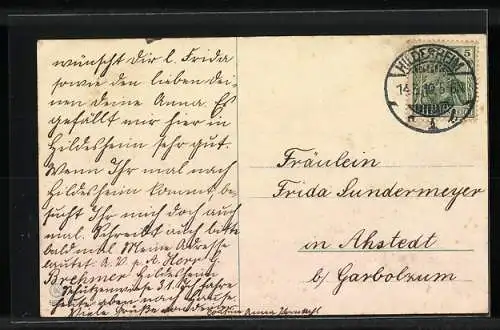 wünscht Dir l. Frida
sowie den lieben Dei-
nen deine Anna. Es
gefällt mir hier in
Hildesheim sehr gut.
Wenn Ihr mal nach
Hildesheim kommt be-
sucht Ihr mich doch auch
mal. Schreibt auch bitte
bald mal Meine Adresse
lautet: A. V. p. A. Herrn
Brehmer Hildesheim
31. Ich fahre
heute aben nach Hause.
Viele Grüße
Anna
HILDESHEIM
14.
1
5
Fräulein
Frida Sundermeyer
in Ahstedt
b/ Garbolzum